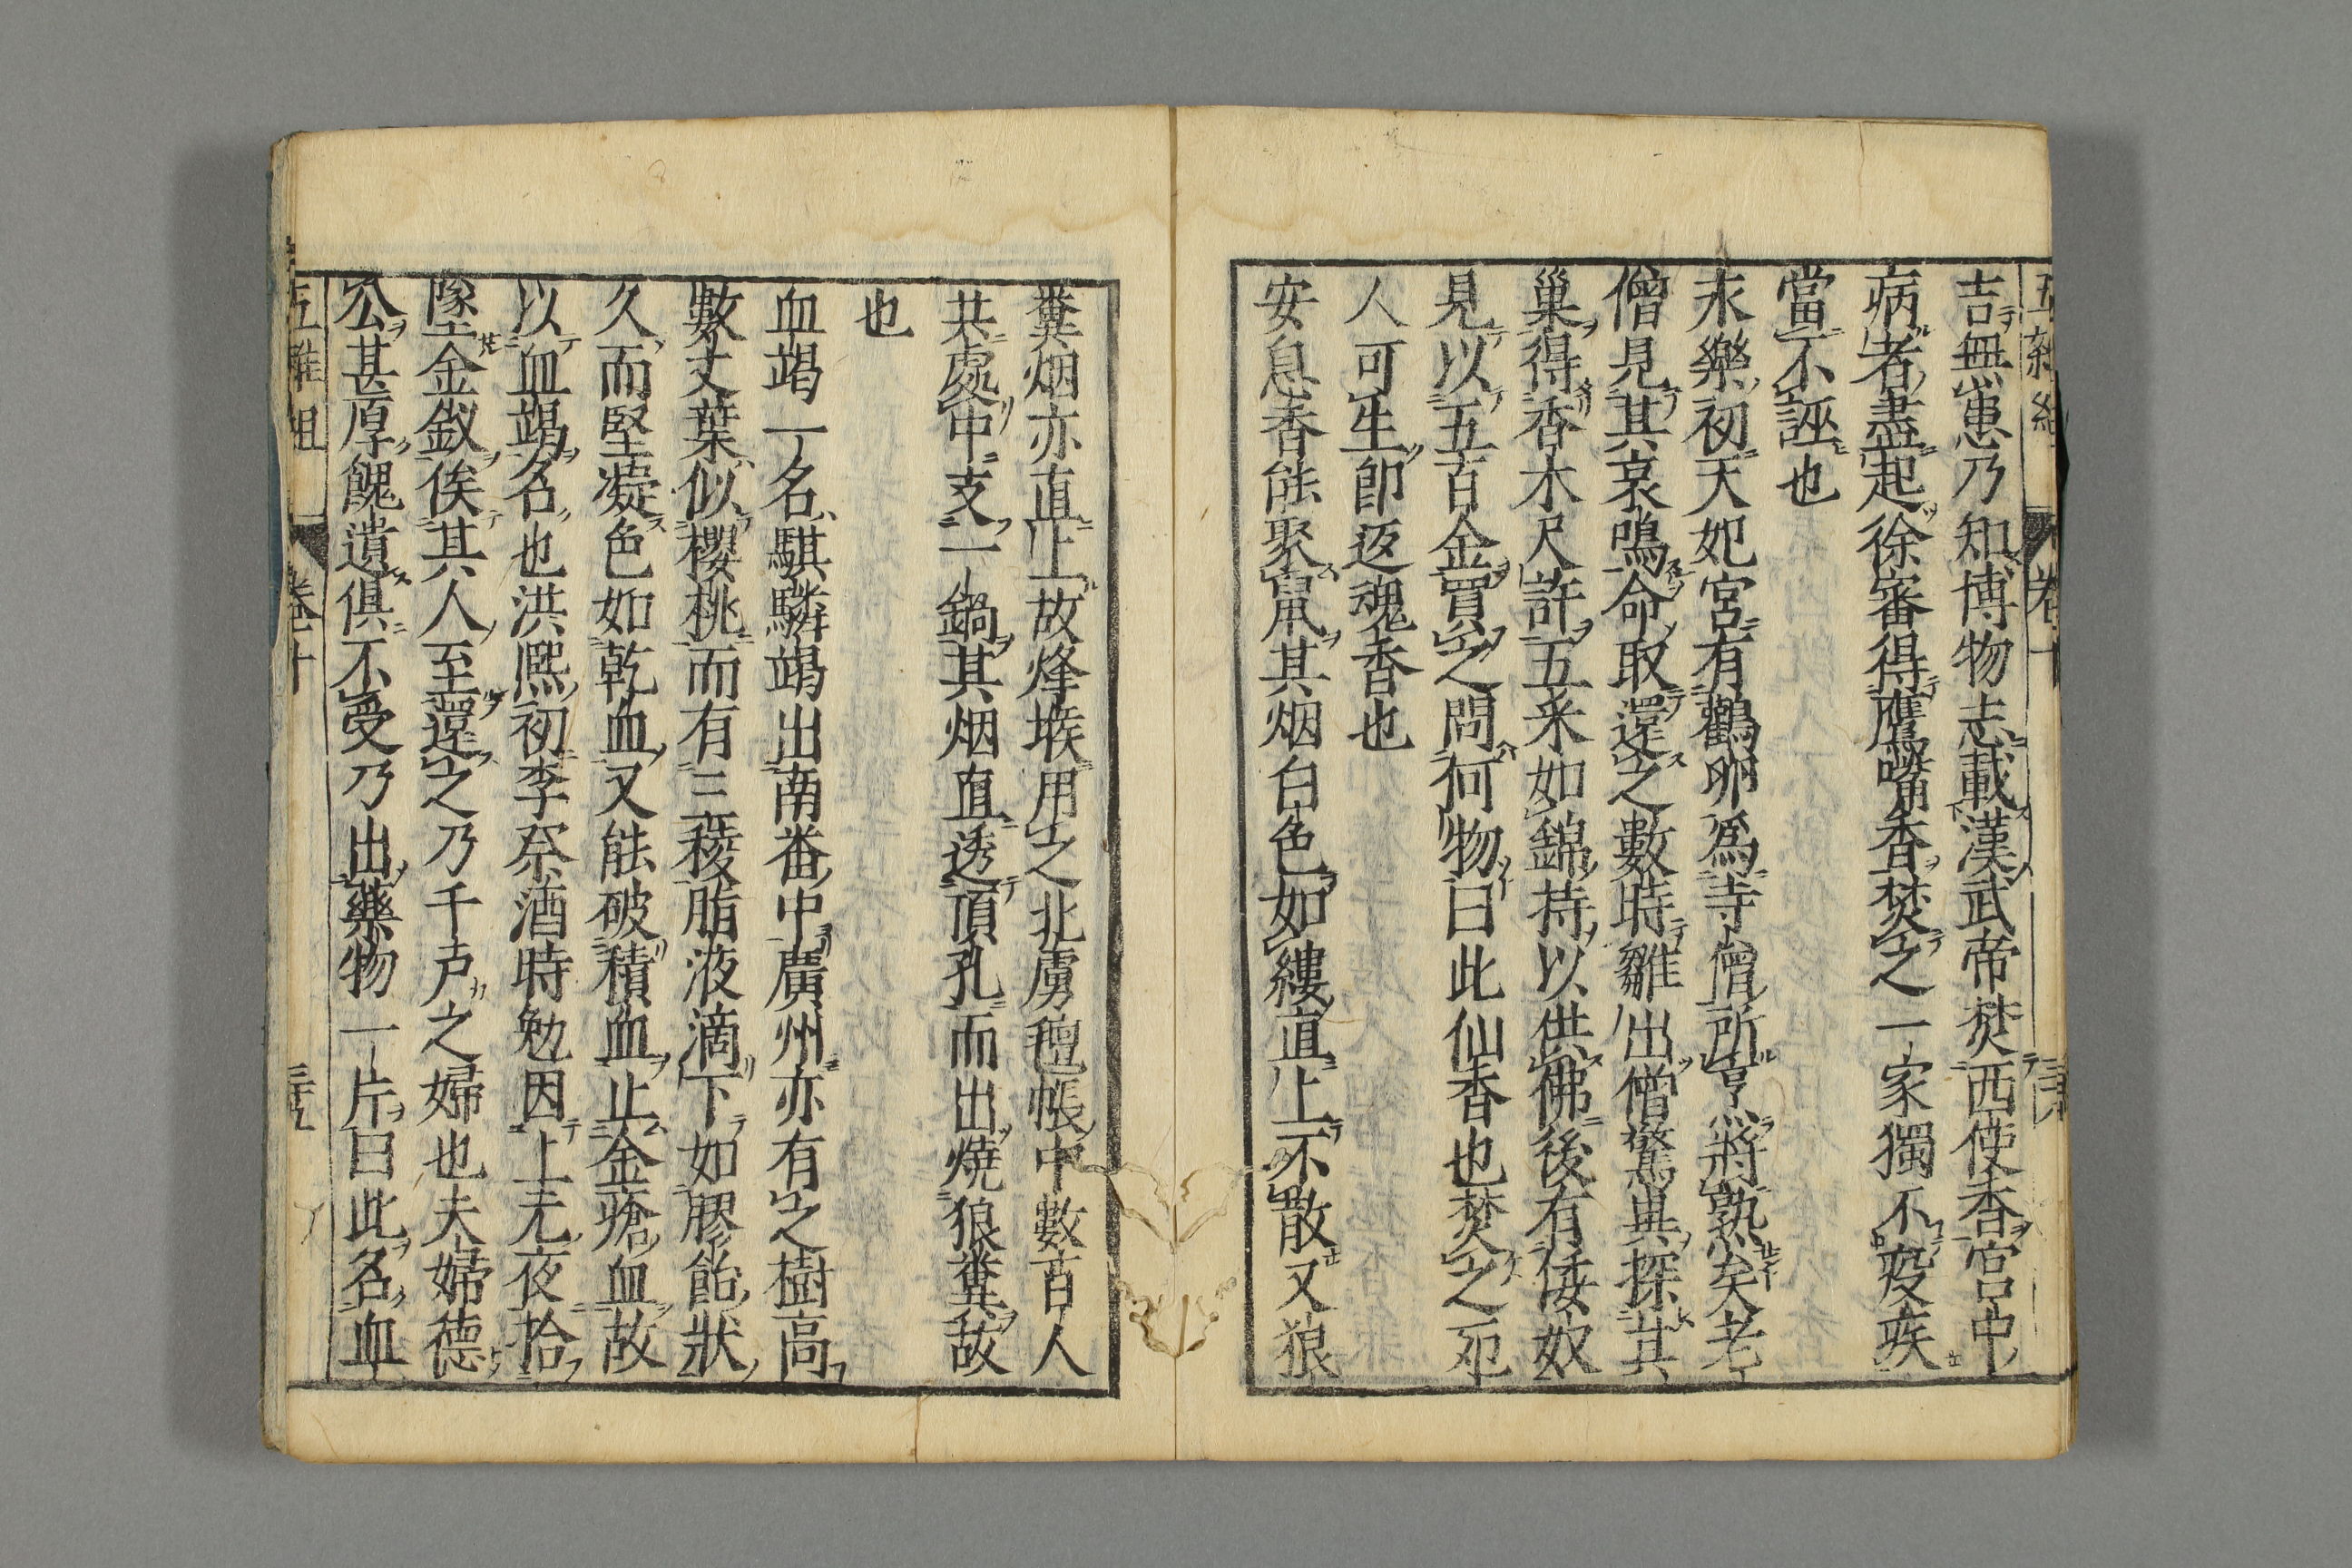 吉無恙乃知博物志載漢武帝焚西使香宮中
病者盡起徐審得鷹嘴香焚之一家獨不疫疾
當不誣也
永樂初天妃宮有鸛卵爲寺僧所烹將熟矣老
僧見其哀鳴命取還之數時雛出僧驚異探其
巢得香木尺許五采如錦持以供佛後有倭奴
見以五百金買之問何物曰此仙香也焚之死
人可生即返魂香也
安息香能聚鼠其烟白色如縷直上不散又狼
糞烟亦直上故烽堠用之北虜氊帳中數百人
共處中支一鍋其烟直透頂孔而出燒狼糞故
也
血竭一名騏驎竭出南番中廣州亦有之樹高
數丈葉似櫻桃而有三稜脂液滴下如膠飴狀
久而堅凝色如乾血又能破積血止金瘡血故
以血竭名也洪熈初李祭酒時勉因上元夜拾
墜金釵俟其人至還之乃千戶之婦也夫婦德
公甚厚餽遺俱不受乃出藥物一片曰此名血
五雜組 卷十